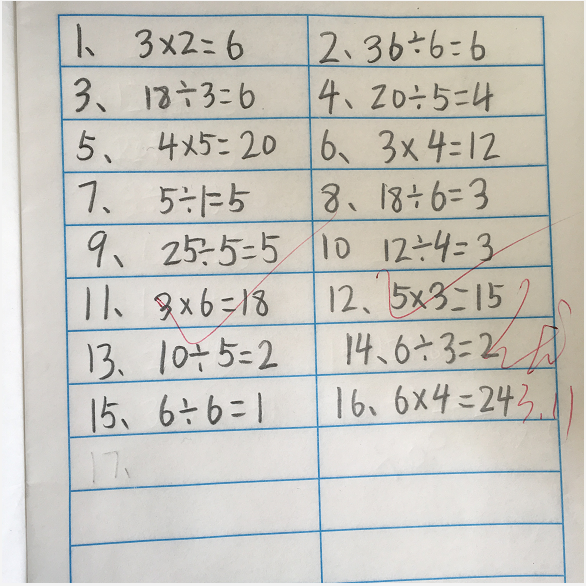 1、 3×2=6
2、36÷6=6
3、 18÷3=6
4、20÷5=4
5、 4×5=20
6、 3×4=12
7、 5÷1=5
8、18÷6=3
9、 25÷5=5
10 12÷4=3
11、 3×6=18
12、5×3=15
13、 10÷5=2
14、6÷3=2
15、 6÷6=1
16、6×4=24
3.11
17、